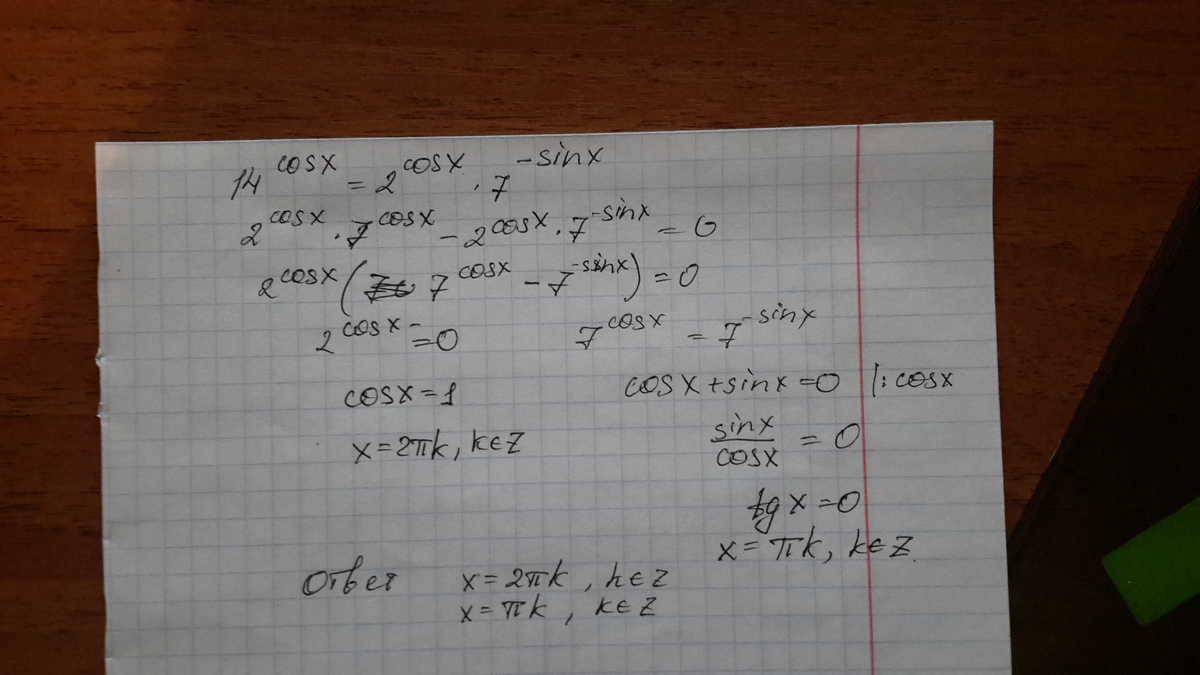 14^cosx = 2^cosx · 7^-sinx
2^cosx · 7^cosx - 2^cosx · 7^-sinx = 0
2^cosx ( 7^cosx - 7^-sinx ) = 0
2^cosx = 0 7^cosx = 7^-sinx
cosx = 1 cosx + sinx = 0 |: cosx
x = 2πk, k∈Z sinx/cosx = 0
tg x = 0
x = πk, k∈Z.
Ответ x = 2πk, k∈Z
x = πk, k∈Z